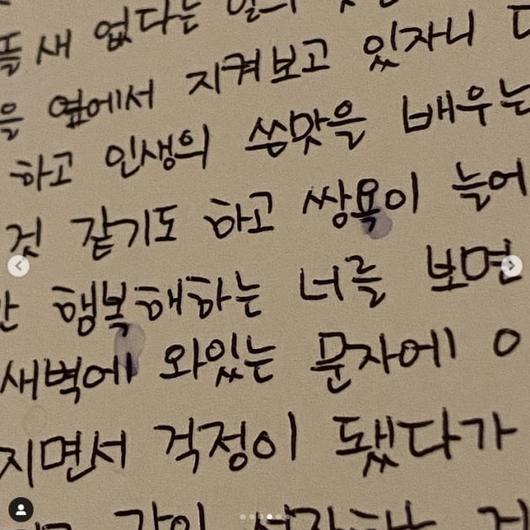 새 없다는
을 옆에서 지켜보고 있자니
하고 인생의 씁맛을 배우는
것 같기도 하고 쌍욕이 늘어
행복해하는 너를 보면
새벽에 와있는 문자에 이
지면서 걱정이 됐다가
같이